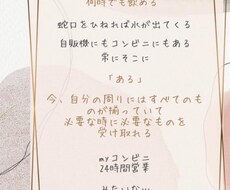 何時でも飲める
蛇口をひねれば水が出てくる
自販機にもコンビニにもある
常にそこに
「ある」
今、自分の周りにはすべてのも
のが揃っていて
必要な時に必要なものを
受け取れる
myコンビニ
24時間営業
みたいな…